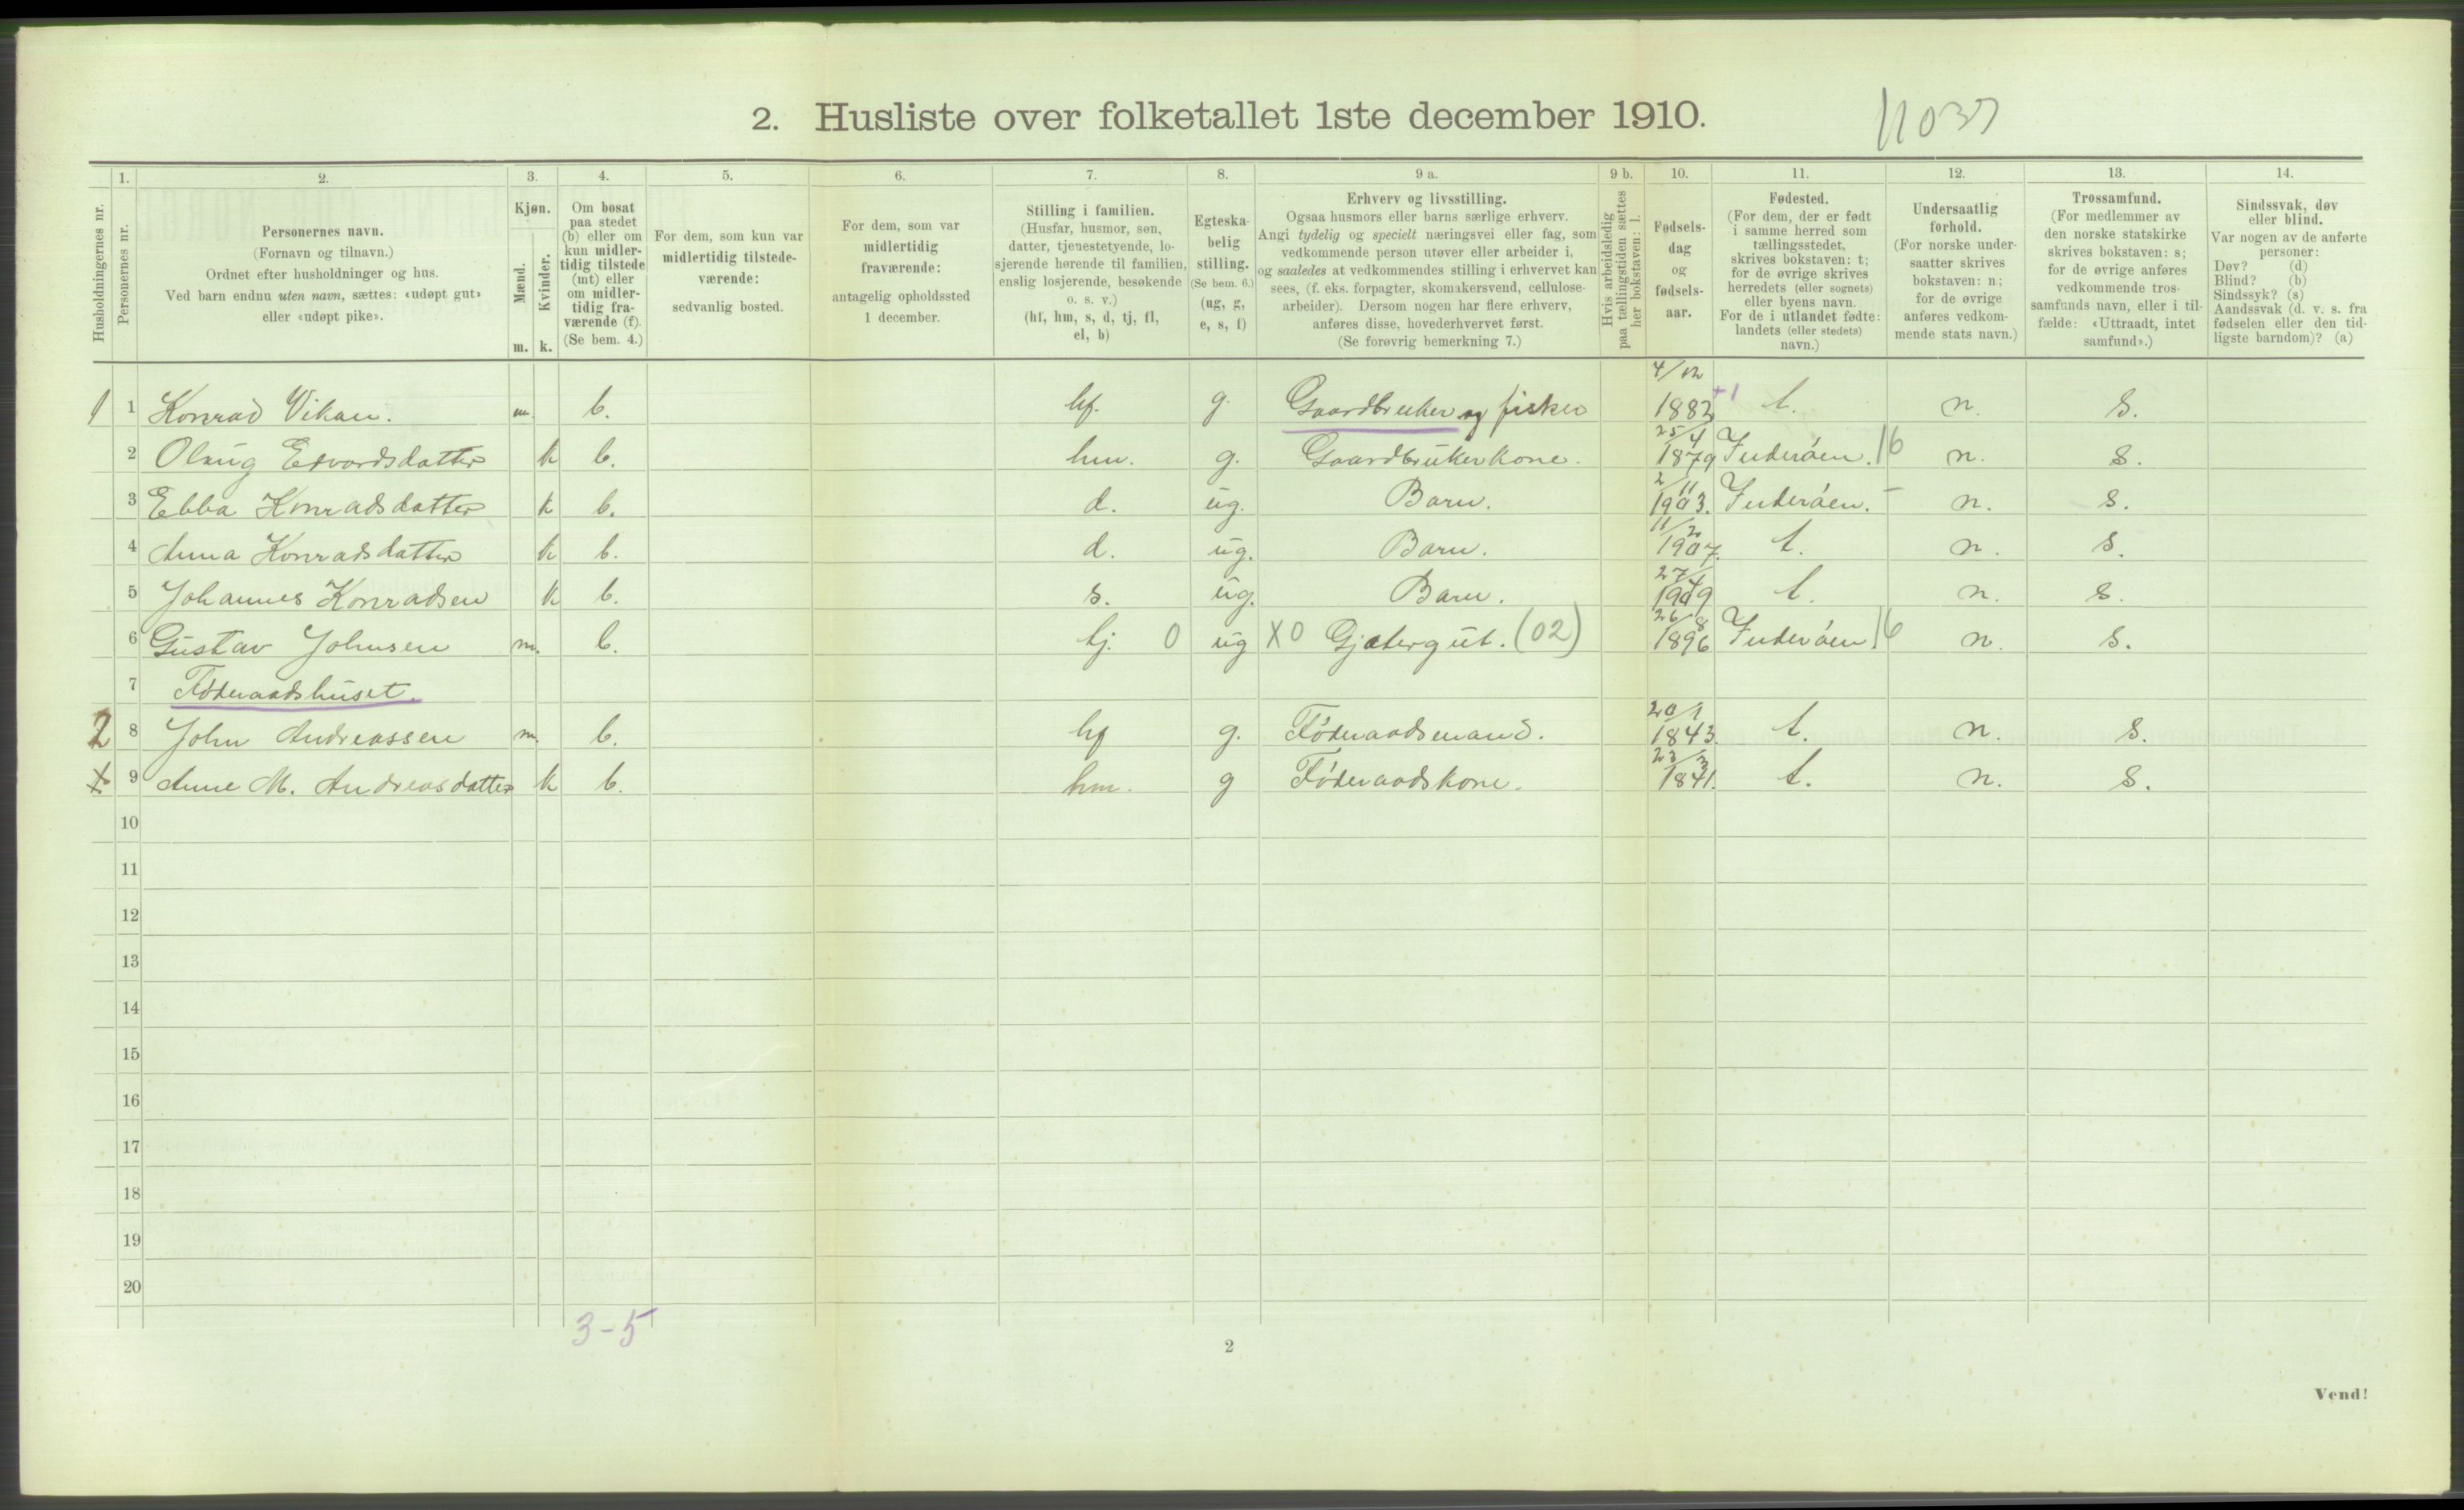 2. Husliste over folketallet 1ste december 1910.
11037
Husholdningernes nr.
1.
Personernes nr.
2.
Personernes navn.
(Fornavn og tilnavn.)
Ordnet efter husholdninger og hus.
Ved barn endnu uten navn, sættes: «udøpt gut»
eller «udøpt pike».
3.
Kjøn.
Mænd.
Kvinder.
m. k.
4.
Om bosat
paa stedet
(b) eller om
kun midler-
tidig tilstede
(mt) eller
om midler-
tidig fra-
værende (f).
(Se bem. 4.)
5.
For dem, som kun var
midlertidig tilstede-
værende:
sedvanlig bosted.
6.
For dem, som var
midlertidig
fraværende:
antagelig opholdssted
1 december.
7.
Stilling i familien.
(Husfar, husmor, søn,
datter, tjenestetyende, lo-
sjerende hørende til familien,
enslig losjerende, besøkende
o. s. v.)
(hf, hm, s, d, tj, fl,
el, b)
8.
Egteska-
belig
stilling.
(Se bem. 6.)
(ug, g,
e, s, f)
9 a.
Erhverv og livsstilling.
Ogsaa husmors eller barns særlige erhverv.
Angi tydelig og specielt næringsvei eller fag, som
vedkommende person utøver eller arbeider i,
og saaledes at vedkommendes stilling i erhvervet kan
sees, (f. eks. forpagter, skomakersvend, cellulose-
arbeider). Dersom nogen har flere erhverv,
anføres disse, hovederhvervet først.
(Se forøvrig bemerkning 7.)
9 b.
Hvis arbeidsledig
paa tællingstiden sættes
her bokstaven: l.
10.
Fødsels-
dag
og
fødsels-
aar.
11.
Fødested.
(For dem, der er født
i samme herred som
tællingsstedet,
skrives bokstaven: t;
for de øvrige skrives
herredets (eller sognets)
eller byens navn.
For de i utlandet fødte:
landets (eller stedets)
navn.)
12.
Undersaatlig
forhold.
(For norske under-
saatter skrives
bokstaven: n;
for de øvrige
anføres vedkom-
mende stats navn.)
13.
Trossamfund.
(For medlemmer av
den norske statskirke
skrives bokstaven: s;
for de øvrige anføres
vedkommende tros-
samfunds navn, eller i til-
fælde: «Uttraadt, intet
samfund».)
14.
Sindssvak, døv
eller blind.
Var nogen av de anførte
personer:
Døv? (d)
Blind? (b)
Sindssyk? (s)
Aandssvak (d. v. s. fra
fødselen eller den tid-
ligste barndom)? (a)
1 1 Konrad Vikan. m. b. hf. g. Gaardbruker og fisker 4/12 1882 +1 t. n. s.
2 Olaug Edvardsdatter k b. hm. g. Gaardbrukerkone. 25/4 1879 Inderøen. 16 n. s.
3 Ebba Konradsdatter k b. d. ug. Barn. 2/11 1903. Inderøen. - n. s.
4 Anna Konradsdatter k b. d. ug. Barn. 11/2 1907. t. n. s.
5 Johannes Konradsen k b. s. ug. Barn. 27/4 1909 t. n. s.
6 Gustav Johnsen m. b. tj. 0 ug X0 Gjætergut. (02) 26/8 1896 Inderøen 16 n. s.
7 Føderaadshuset.
2 8 John Andreassen m. b. hf g. Føderaadsmand. 20/1 1843. t. n. s.
x 9 Anne M. Andreasdatter k b. hm. g Føderaadskone. 23/3 1841. t. n. s.
10
11
12
13
14
15
16
17
18
19
20
3-5
2
Vend!